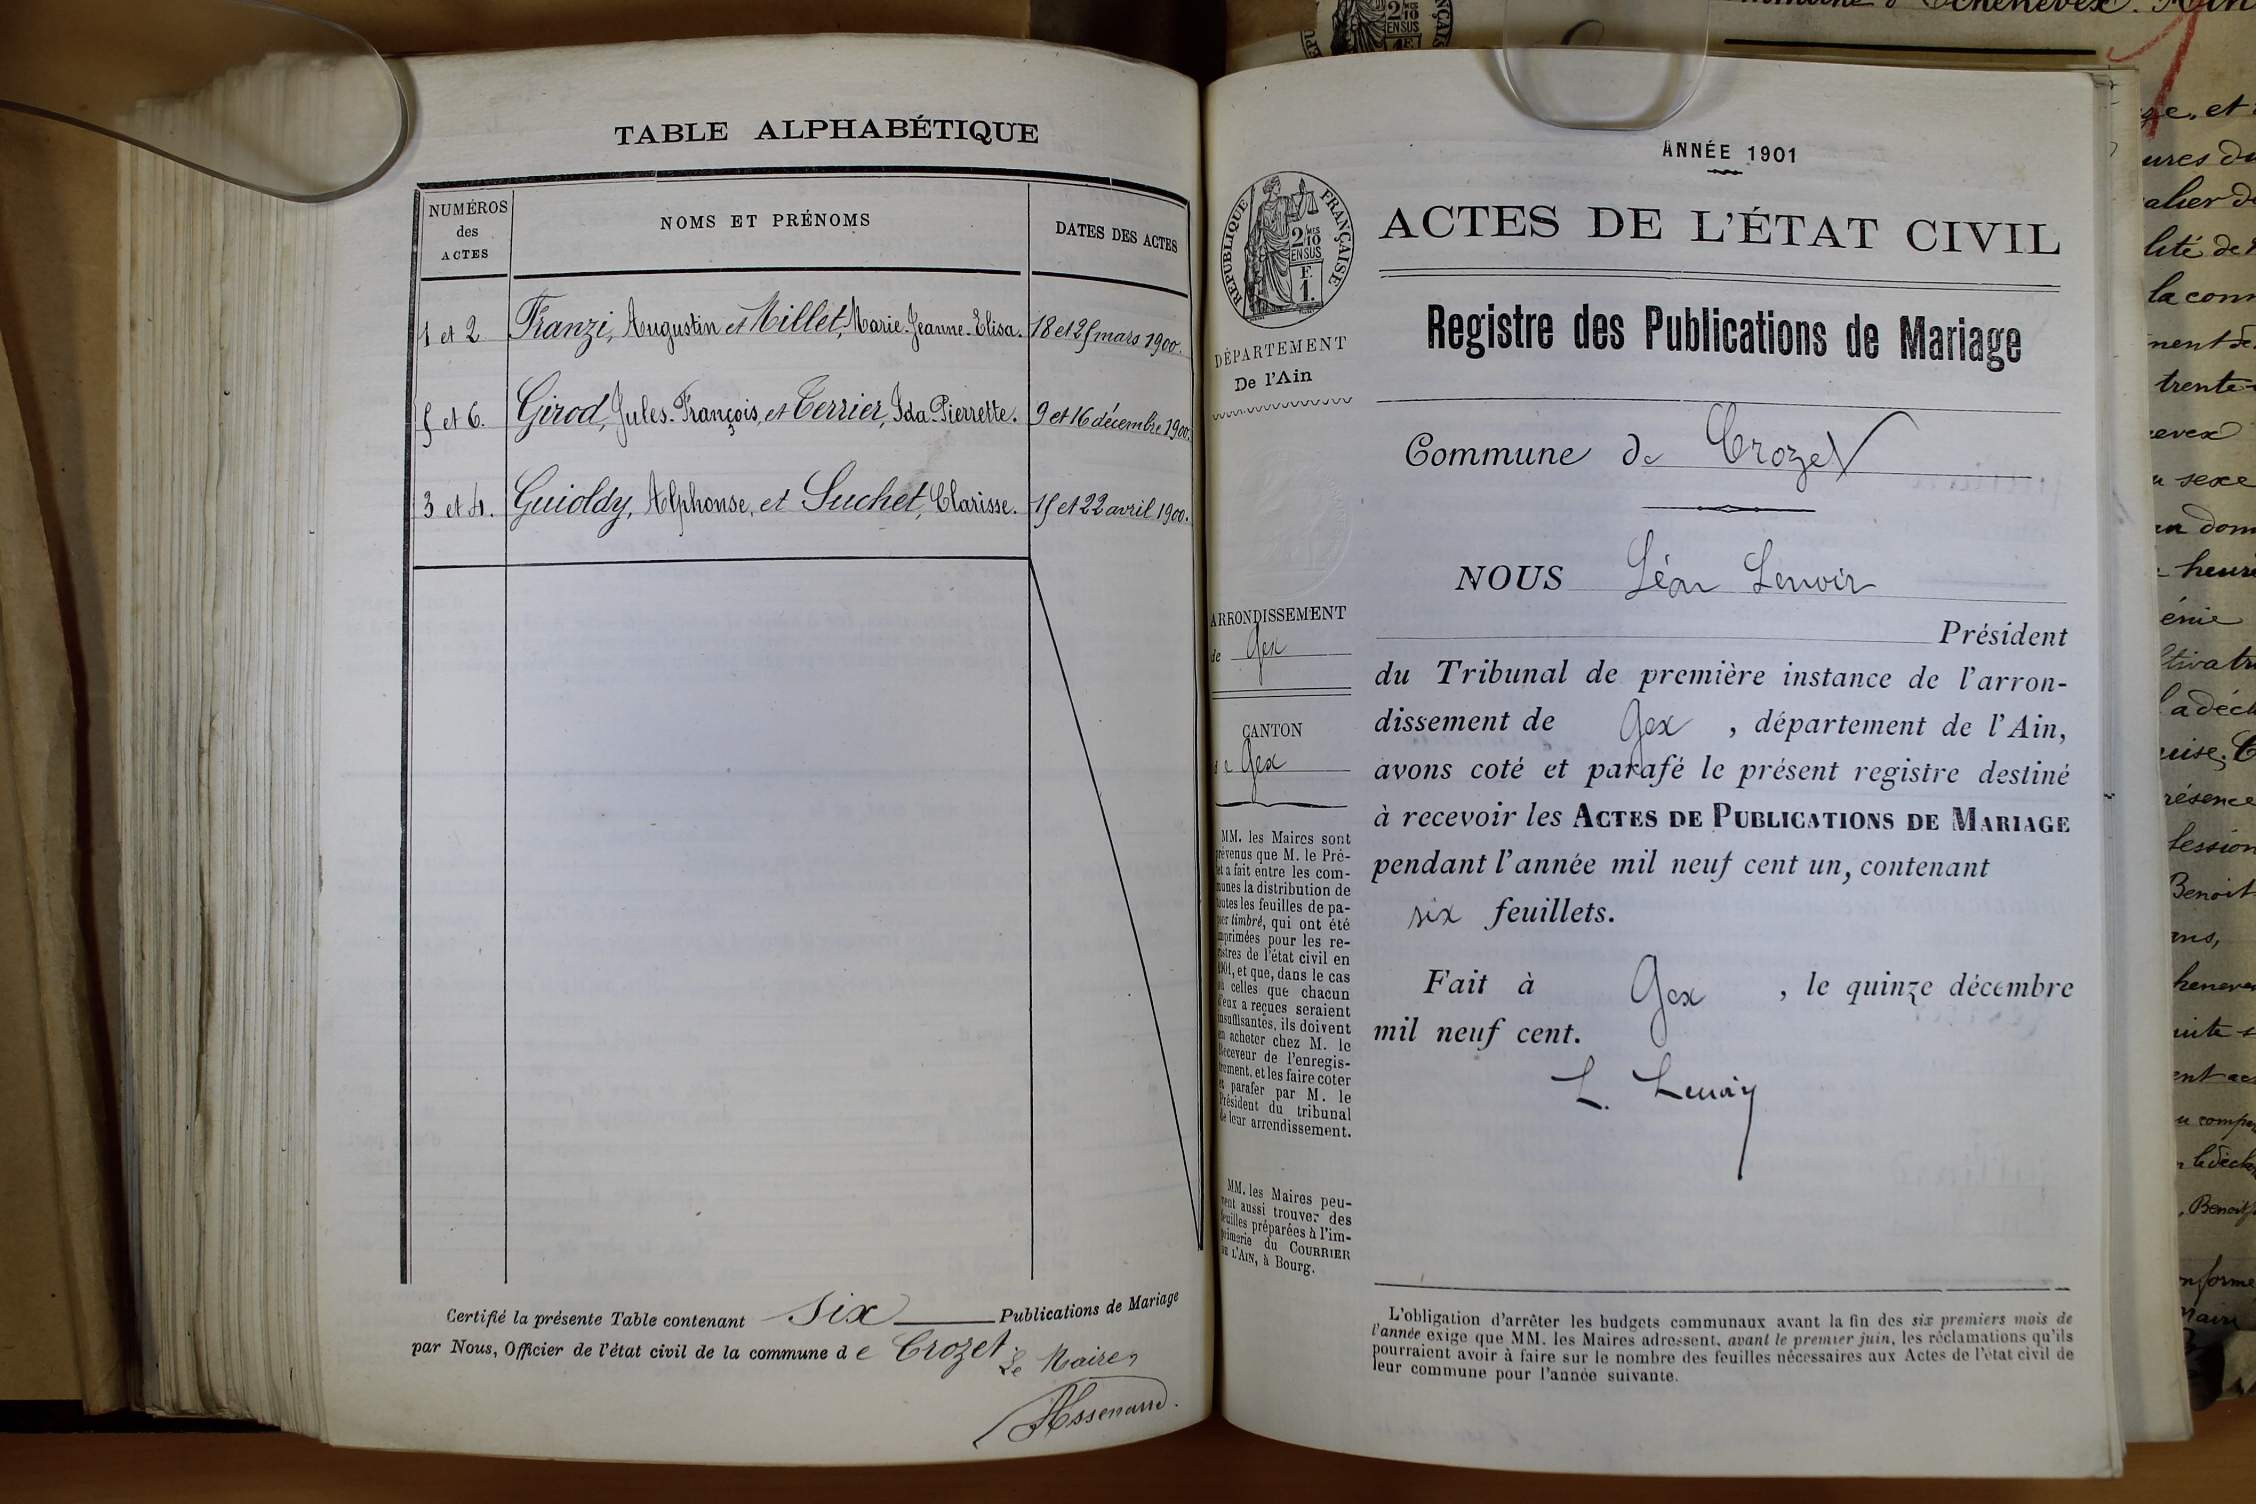 TABLE ALPHABÉTIQUE
NUMÉROS
des
ACTES
NOMS ET PRÉNOMS
DATES DES ACTES
1 et 2 Franzi, Augustin et Millet, Marie-Jeanne-Elisa. 18 et 25 mars 1900.
5 et 6. Girod, Jules-François, et Terrier, Ida-Pierrette. 9 et 16 décembre 1900.
3 et 4. Guioldy, Alphonse, et Suchet, Clarisse. 15 et 22 avril 1900.
Certifié la présente Table contenant six Publications de Mariage
par Nous, Officier de l'état civil de la commune de Crozet.
Le Maire,
ANNÉE 1901
ACTES DE L'ÉTAT CIVIL
Registre des Publications de Mariage
RÉPUBLIQUE FRANÇAISE
2/10 MES
EN SUS
F.
1.
DÉPARTEMENT
De l'Ain
ARRONDISSEMENT
de Gex
CANTON
de Gex
MM. les Maires sont
prévenus que M. le Pré-
fet a fait entre les com-
munes la distribution de
toutes les feuilles de pa-
pier timbré, qui ont été
imprimées pour les re-
gistres de l'état civil en
1901, et que, dans le cas
où celles que chacun
d'eux a reçues seraient
insuffisantes, ils doivent
en acheter chez M. le
Receveur de l'enregis-
trement, et les faire coter
et parafer par M. le
Président du tribunal
de leur arrondissement.
MM. les Maires peu-
vent aussi trouver des
feuilles préparées à l'im-
primerie du COURRIER
DE L'AIN, à Bourg.
Commune de Crozet
NOUS Léon Lenoir
Président
du Tribunal de première instance de l'arron-
dissement de Gex , département de l'Ain,
avons coté et parafé le présent registre destiné
à recevoir les ACTES DE PUBLICATIONS DE MARIAGE
pendant l'année mil neuf cent un, contenant
six feuillets.
Fait à Gex , le quinze décembre
mil neuf cent.
L. Lenoir
L'obligation d'arrêter les budgets communaux avant la fin des six premiers mois de
l'année exige que MM. les Maires adressent, avant le premier juin, les réclamations qu'ils
pourraient avoir à faire sur le nombre des feuilles nécessaires aux Actes de l'état civil de
leur commune pour l'année suivante.